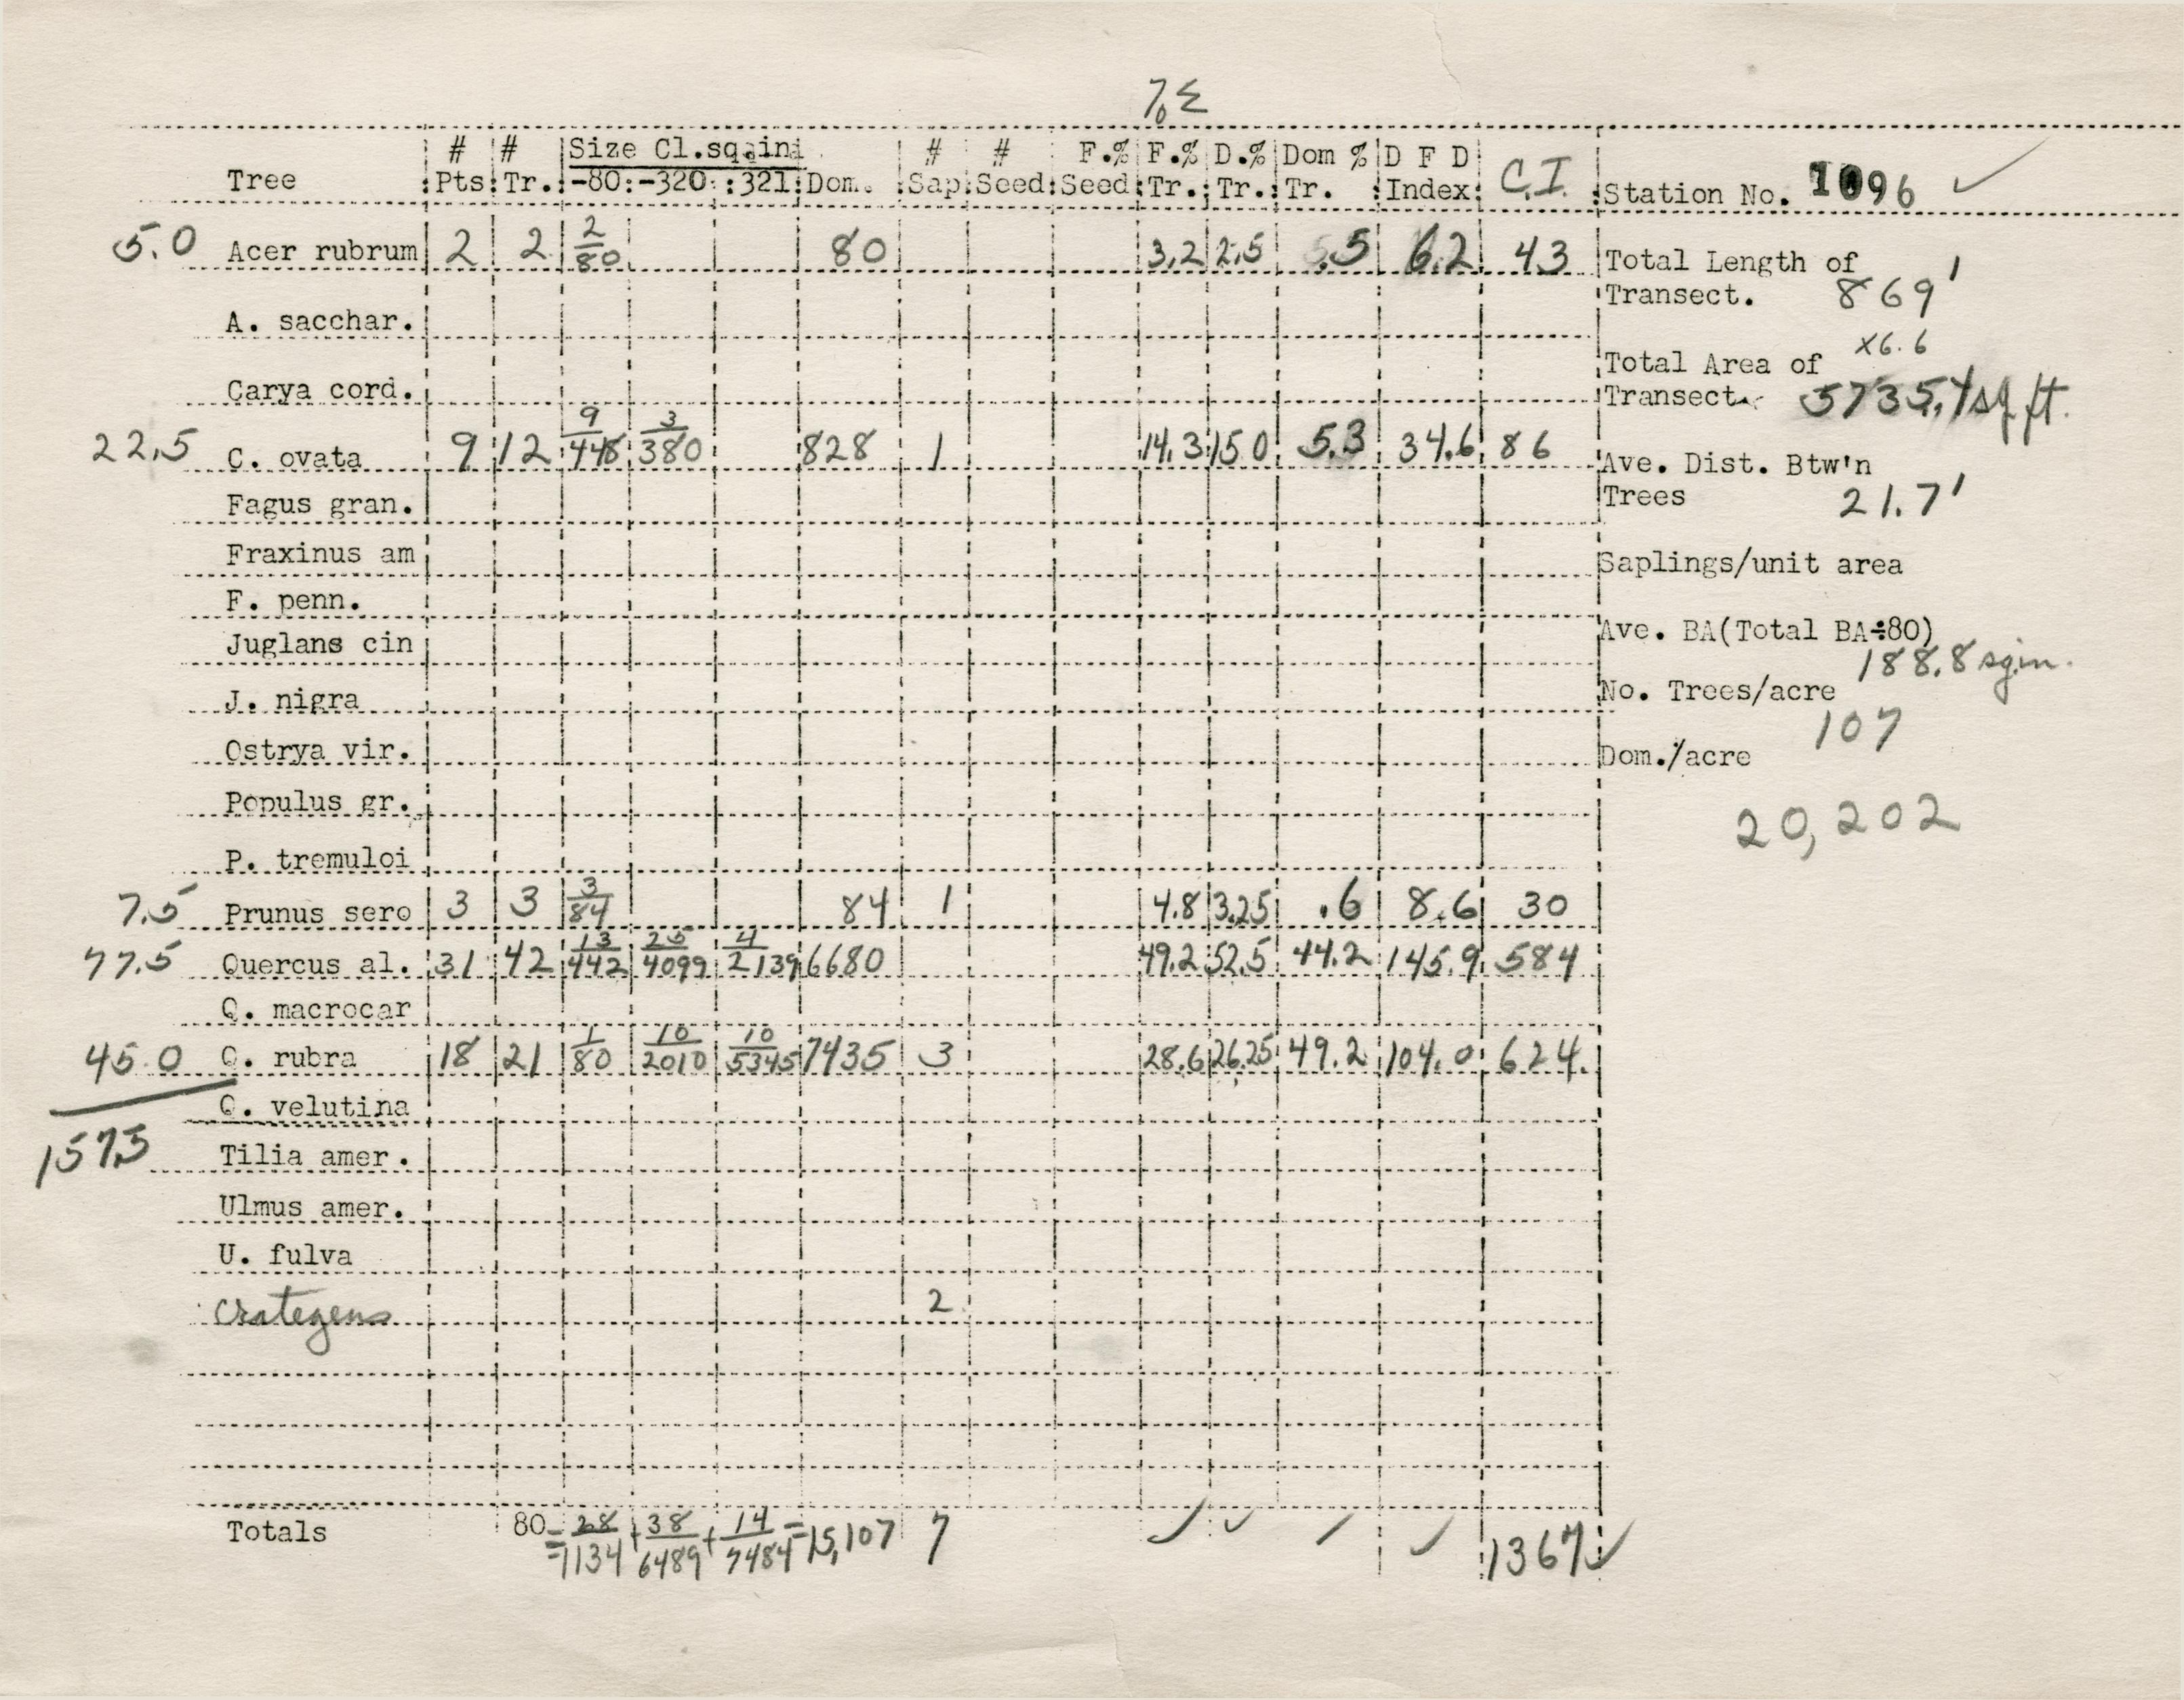 %Σ
# # Size Cl.sq.in # # F.% F.% D.% Dom % D F D
Tree Pts Tr. -80 -320 321 Dom. Sap Seed Seed Tr. Tr. Tr. Index C.I. Station No. 1096 ✓
5.0 Acer rubrum 2 2 2/80 80 3.2 2.5 .5 6.2 43
Total Length of
Transect. 869'
A. sacchar.
x6.6
Total Area of
Transect. 5735.4 sq ft.
Carya cord.
22.5 C. ovata 9 12 9/448 3/380 828 1 14.3 15.0 5.3 34.6 86
Ave. Dist. Btw'n
Trees 21.7'
Fagus gran.
Fraxinus am
Saplings/unit area
F. penn.
Juglans cin
Ave. BA(Total BA÷80)
188.8 sq.in.
J. nigra
No. Trees/acre
107
Ostrya vir.
Dom./acre
Populus gr.
20,202
P. tremuloi
7.5 Prunus sero 3 3 3/84 84 1 4.8 3.25 .6 8.6 30
77.5 Quercus al. 31 42 13/442 25/4099 4/2139 6680 49.2 52.5 44.2 145.9 584
Q. macrocar
45.0 Q. rubra 18 21 1/80 10/2010 10/5345 7435 3 28.6 26.25 49.2 104.0 624.
Q. velutina
157.5
Tilia amer.
Ulmus amer.
U. fulva
Crategens 2
Totals 80 = 28/1134 + 38/6489 + 14/7484 = 15,107 7 ✓ ✓ ✓ ✓ 1367 ✓